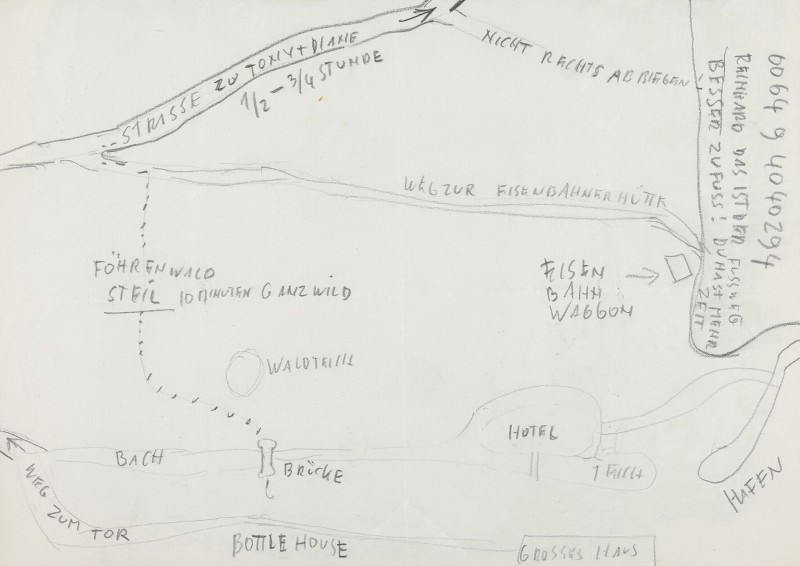 STRASSE ZU TONY + DIANE
1/2 – 3/4 STUNDE
NICHT RECHTS ABBIEGEN
0064 9 4040294
REINHARD DAS IST DER FUSSWEG
BESSER ZUFUSS! DU HAST MEHR
ZEIT
WEG ZUR EISENBAHNERHÜTTE
FÖHRENWALD
STEIL 10 MINUTEN GANZ WILD
EISEN
BAHN
WAGGON
WALDTEICH
HOTEL
TEICH
HAFEN
BACH
BRÜCKE
WEG ZUM TOR
BOTTLE HOUSE
GROSSES HAUS